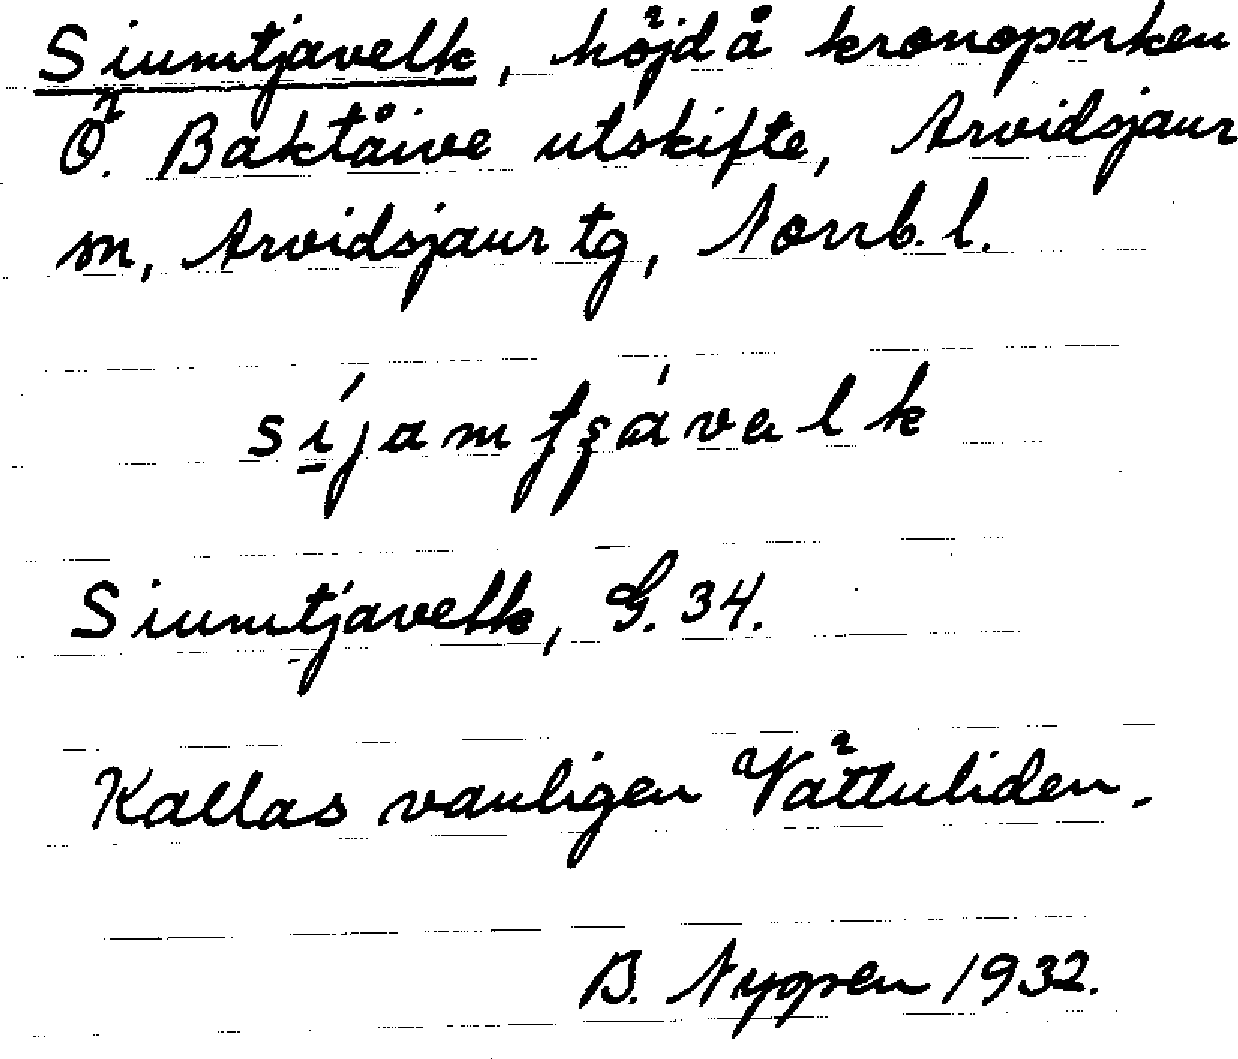 Siumtjavelk, höjd å kronoparken
Ö. Baktåive utskifte, Arvidsjaur
sn, Arvidsjaur tg, Norrb. l.
Siumtjavelk, G. 34.
Kallas vanligen Vättuliden.
B. Nygren 1932.